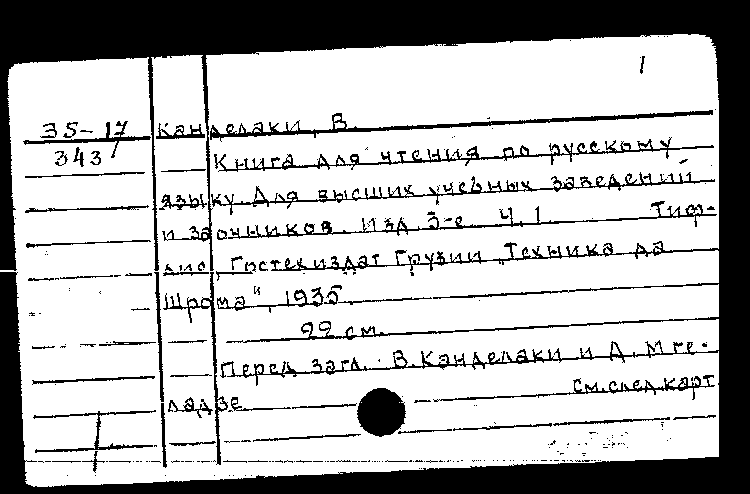 1
35-17 Канделаки, В.
343 Книга для чтения по русскому
языку. Для высших учебных заведений
и заочников. Изд. 3-е. Ч. 1. Тиф-
лис, Гостехиздат Грузии „Техника да
Шрома“, 1935.
22 см.
Перед загл.: В. Канделаки и Д. Мге-
ладзе
см. след. карт.